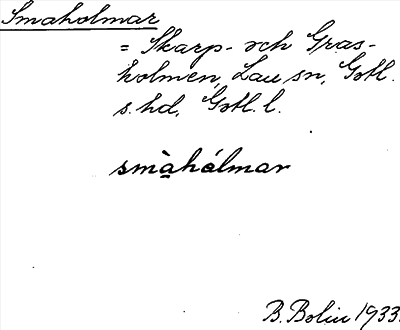 Smaholmar
= Skarp- och Gras-
holmen, Lau sn, Gotl.
s. hd, Gotl. l.
smàhálmar
B. Bolin 1933.